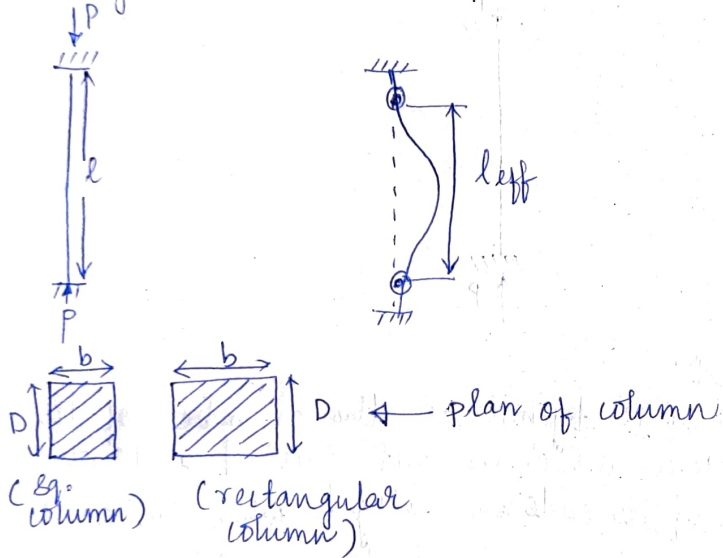 P
l
P
leff
b
b
D
D ← plan of column
(sq. column)
(rectangular column)